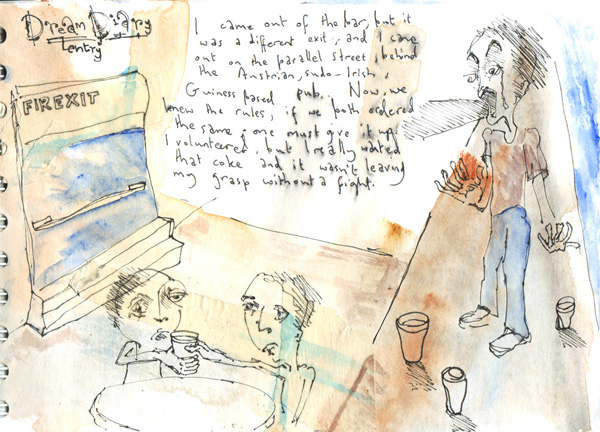 Dream Diary
entry
FIREXIT
I came out of the bar, but it
was a different exit, and I came
out on the parallel street, behind
the Austrian, sudo-Irish,
Guiness based pub. Now, we
knew the rules, if we both ordered
the same, one must give it up.
I volunteered, but I really wanted
that coke and it wasn't leaving
my grasp without a fight.